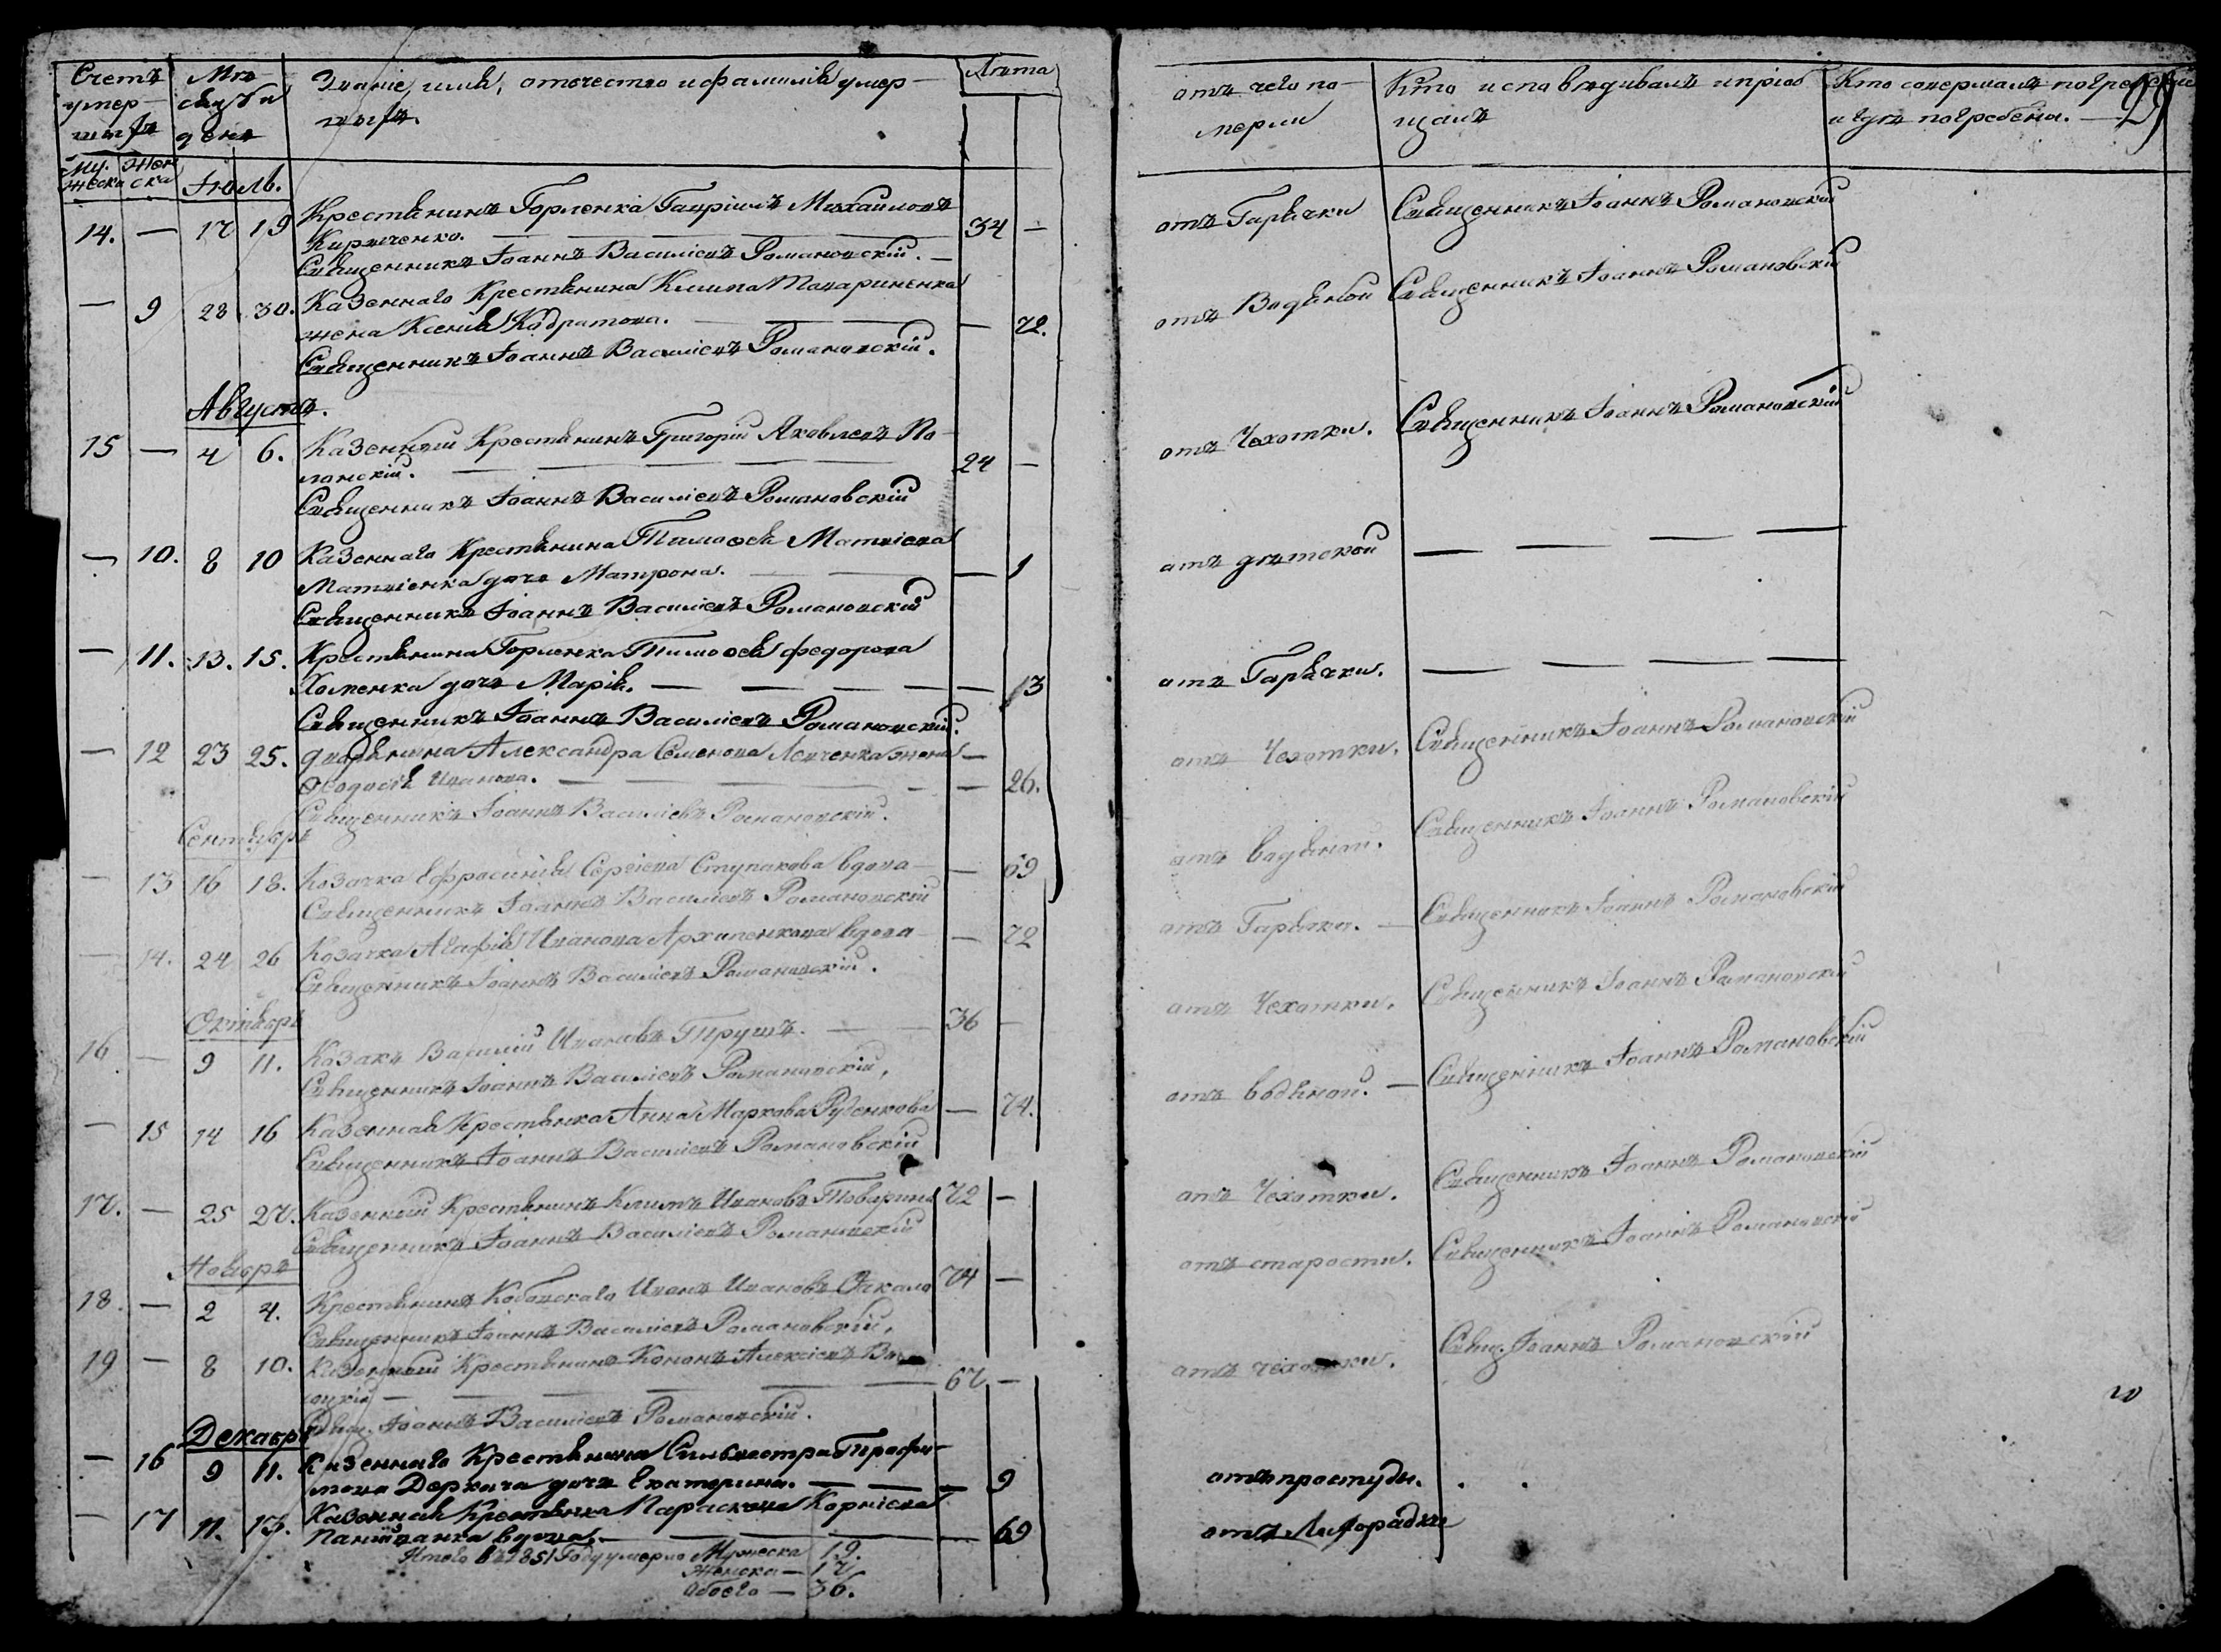 Счетъ умер-шихъ
Му-жеска
Жен-ска
Мѣ-сяцъ и день
Званіе, имя, отечество и фамилія умер-
шихъ.
Лѣта
Іюль.
14. — 17 19 Крестянинъ Горленка Гавріилъ Михайловъ
Кириченко. — 34 —
Священникъ Іоаннъ Василіевъ Романовскій. —
— 9 28 30. Казеннаго Крестянина Клима Товариненка
жена Ксенія Кодратова. — — 72.
Священникъ Іоаннъ Василіевъ Романовскій.
Августъ.
15 — 4 6. Казенный Крестянинъ Григорій Яковлевъ По-
лонскій. — 24 —
Священникъ Іоаннъ Василіевъ Романовскій
— 10. 8 10 Казеннаго Крестянина Тимоѳея Матвіева
Матвіенка дочь Матрона. — — 1
Священникъ Іоаннъ Василіевъ Романовскій
— 11. 13. 15. Крестянина Горленка Тимоѳея Федорова
Хоменка дочь Марія. — — 13
Священникъ Іоаннъ Василіевъ Романовскій.
— 12 23 25. Дворянина Александра Семенова Левченка жена —
Ѳеодосія Иванова. — — 26.
Священникъ Іоаннъ Василіевъ Романовскій.
Сентябрь
— 13 16 18. Козачка Ефросинія Сергіева Ступакова вдова — — 69
Священникъ Іоаннъ Василіевъ Романовскій
— 14. 24 26 Козачка Агафія Иванова Архипенкова вдова — — 72
Священникъ Іоаннъ Василіевъ Романовскій.
Октябрь
16 — 9 11. Козакъ Василій Ивановъ Трушъ. — 36 —
Священникъ Іоаннъ Василіевъ Романовскій.
— 15 14 16 Казенная Крестянка Анна Маркова Руденкова — 74.
Священникъ Іоаннъ Василіевъ Романовскій
17. — 25 27. Казенный Крестянинъ Климъ Ивановъ Товарина 72 —
Священникъ Іоаннъ Василіевъ Романовскій
Ноябрь
18. — 2 4. Крестянинъ Иванъ Ивановъ 74 —
Священникъ Іоаннъ Василіевъ Романовскій.
19 — 8 10. Казенный Крестянинъ Кононъ Алексіевъ
— 67 —
Свящ. Іоаннъ Василіевъ Романовскій.
Декабрь
— 16 9 11. Казеннаго Крестянина Сильвестра Трофи-
мова Деркача дочь Екатерина. — — 9
— 17 11. 13. Казенная Крестянка Параскева Корніева
вдова. — — 69
Итого въ 1851 Году умерло Мужеска 19.
Женска — 17
Обоего — 36.
отъ чего по-
мерли
Кто исповѣдивалъ и пріоб
щалъ
Кто совершалъ погребеніе
и гдѣ погребены. —
29
отъ Гарячки Священникъ Іоаннъ Романовскій
отъ Водяной Священникъ Іоаннъ Романовскій
отъ Чехотки. Священникъ Іоаннъ Романовскій
отъ дѣтской — — — —
отъ Гарячки. — — — —
отъ Чехотки. Священникъ Іоаннъ Романовскій
отъ водяной. Священникъ Іоаннъ Романовскій
отъ Гарячки. — Священникъ Іоаннъ Романовскій
отъ Чехотки. Священникъ Іоаннъ Романовскій
отъ водяной. — Священникъ Іоаннъ Романовскій
отъ Чехотки. Священникъ Іоаннъ Романовскій
отъ старости. Священникъ Іоаннъ Романовскій
отъ чехотки. Свящ. Іоаннъ Романовскій
отъ простуды.
отъ Лихорадки